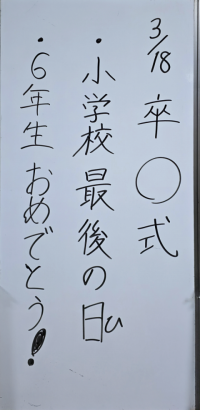 3/18 卒〇式
・小学校最後の日ひ
・6年生おめでとう!